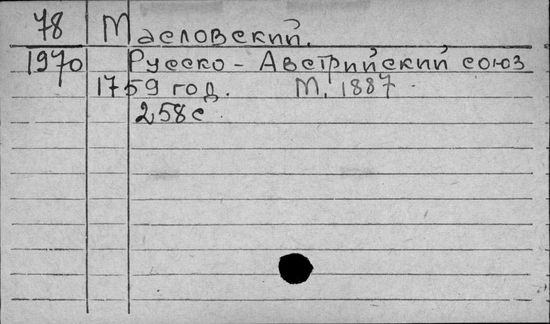 78 Масловский.
1970 Русско - Австрийский союз
1759 год. М. 1887.
258 с